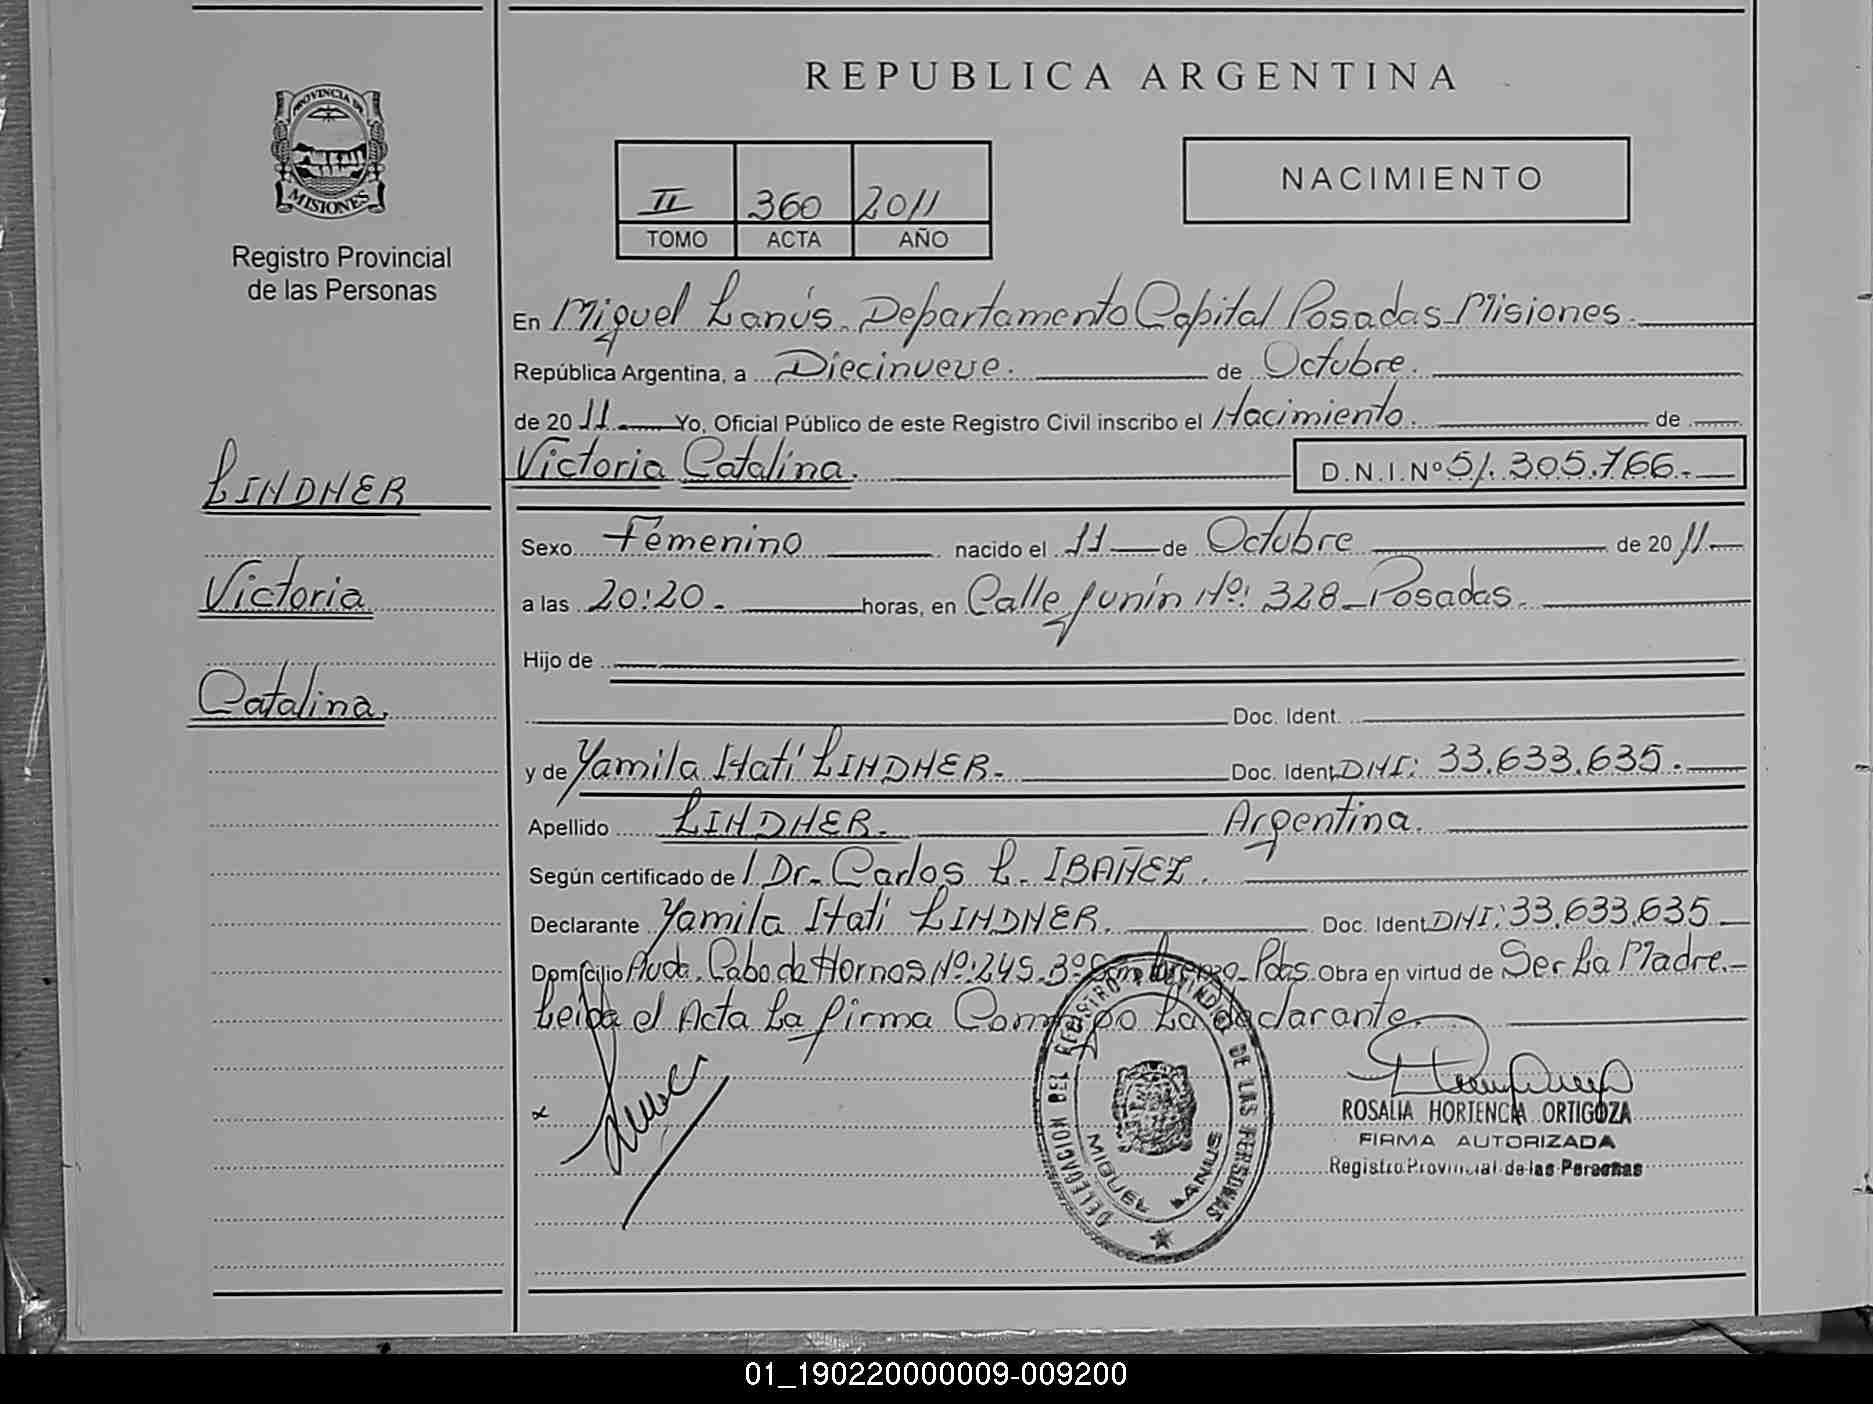 REPUBLICA ARGENTINA
PROVINCIA DE
MISIONES
Registro Provincial
de las Personas
II 360 2011
TOMO ACTA AÑO
NACIMIENTO
En Miguel Lanús. Departamento Capital Posadas Misiones.
República Argentina, a Diecinueve. de Octubre.
de 2011. Yo, Oficial Público de este Registro Civil inscribo el Nacimiento. de
Victoria Catalina. D.N.I.Nº 51.305.766.-
LINDNER
Victoria
Catalina.
Sexo Femenino nacido el 11 de Octubre de 2011
a las 20:20. horas, en Calle Junín Nº: 328 - Posadas.
Hijo de
Doc. Ident.
y de Yamila Itatí LINDNER. Doc. Ident. DNI: 33.633.635.
Apellido LINDNER. Argentina.
Según certificado de / Dr. Carlos L. IBAÑEZ.
Declarante Yamila Itatí LINDNER. Doc. Ident. DNI: 33.633.635
Domicilio Avda. Cabo de Hornos Nº: 245. Bº San Lorenzo - Pdas. Obra en virtud de Ser La Madre.-
Leída el Acta La firma Conmigo La declarante.
DELEGACION DEL REGISTRO PROVINCIAL DE LAS PERSONAS
MIGUEL LANUS
ROSALIA HORTENCIA ORTIGOZA
FIRMA AUTORIZADA
Registro Provincial de las Personas
01_190220000009-009200